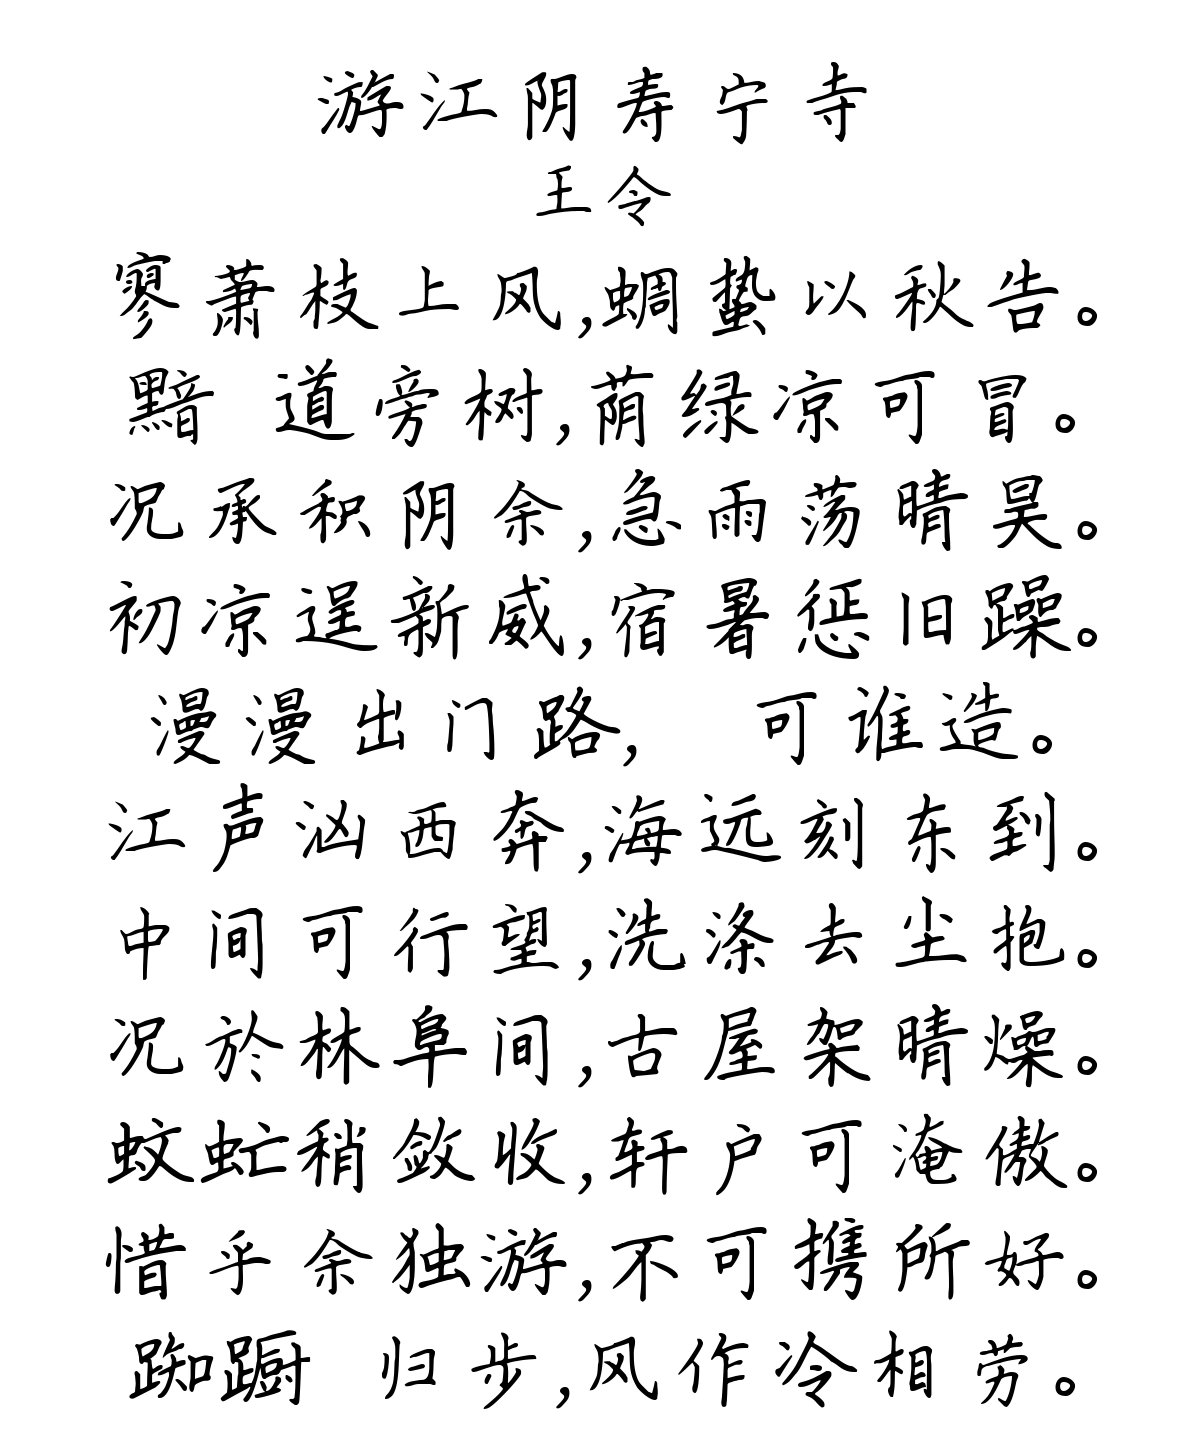 游江阴寿宁寺
王令
寥萧枝上风,蜩蛰以秋告。
黯 道旁树,荫绿凉可冒。
况承积阴余,急雨荡晴昊。
初凉逞新威,宿暑惩旧躁。
漫漫出门路, 可谁造。
江声汹西奔,海远刻东到。
中间可行望,洗涤去尘抱。
况於林阜间,古屋架晴燥。
蚊虻稍敛收,轩户可淹傲。
惜乎余独游,不可携所好。
踟蹰 归步,风作冷相劳。